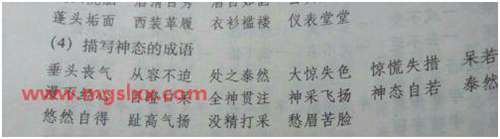 蓬头垢面 西装革履 衣衫褴褛 仪表堂堂
(4) 描写神态的成语
垂头丧气 从容不迫 处之泰然 大惊失色 惊慌失措 呆若
全神贯注 神采飞扬 神态自若 泰然
悠然自得 趾高气扬 没精打采 愁眉苦脸